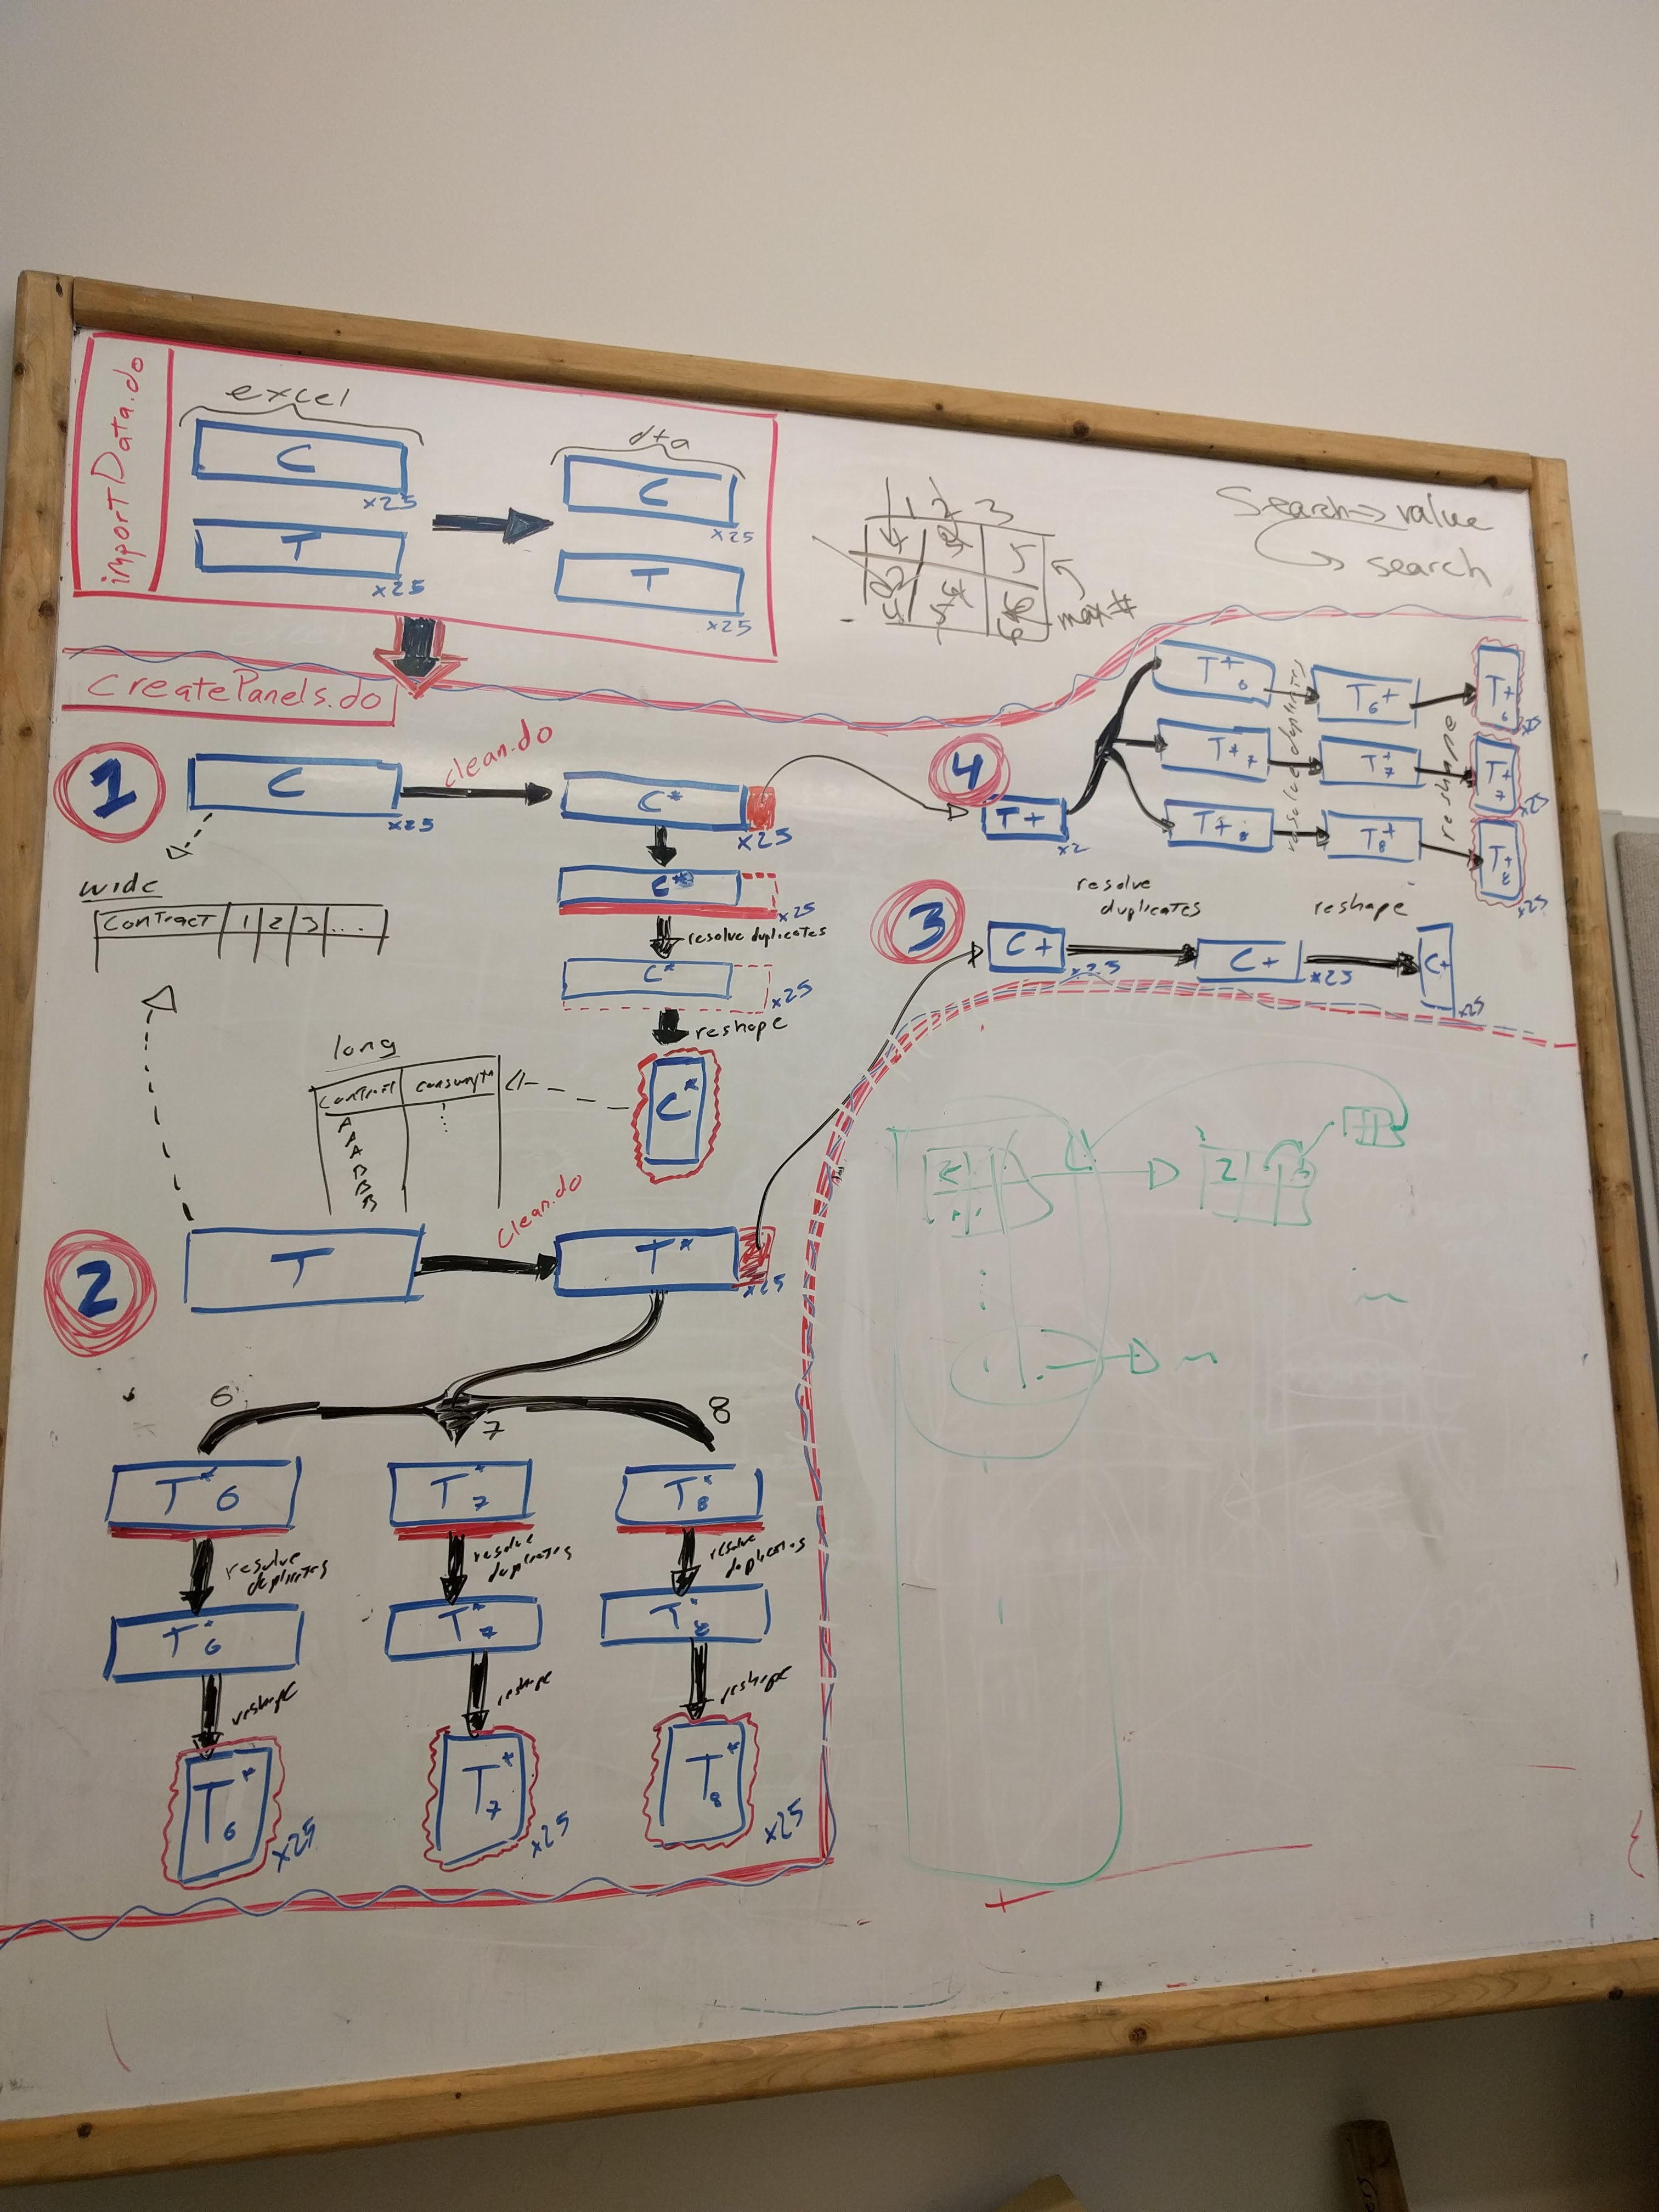 importData.do
excel
C
x25
T
x25
dta
C
x25
T
x25
1 2 3
5
max #
Search → value
search
createPanels.do
1
C
x25
clean.do
C*
x25
C*
x25
resolve duplicates
C*
x25
reshape
C*
wide
contract 1 2 3 ...
long
contract
A
A
A
B
B
B
2
T
clean.do
T*
x25
6
7
8
T*6
T*7
T*8
resolve
duplicates
resolve
duplicates
resolve
duplicates
T*6
T*7
T*8
reshape
reshape
reshape
T*6
x25
T*7
x25
T*8
x25
3
C+
x25
resolve
duplicates
C+
x25
reshape
C+
x25
4
T+
x2
T+6
T+7
T+8
resolve duplicates
T6+
T+7
T8+
reshape
T+6
T+7
T+8
x25